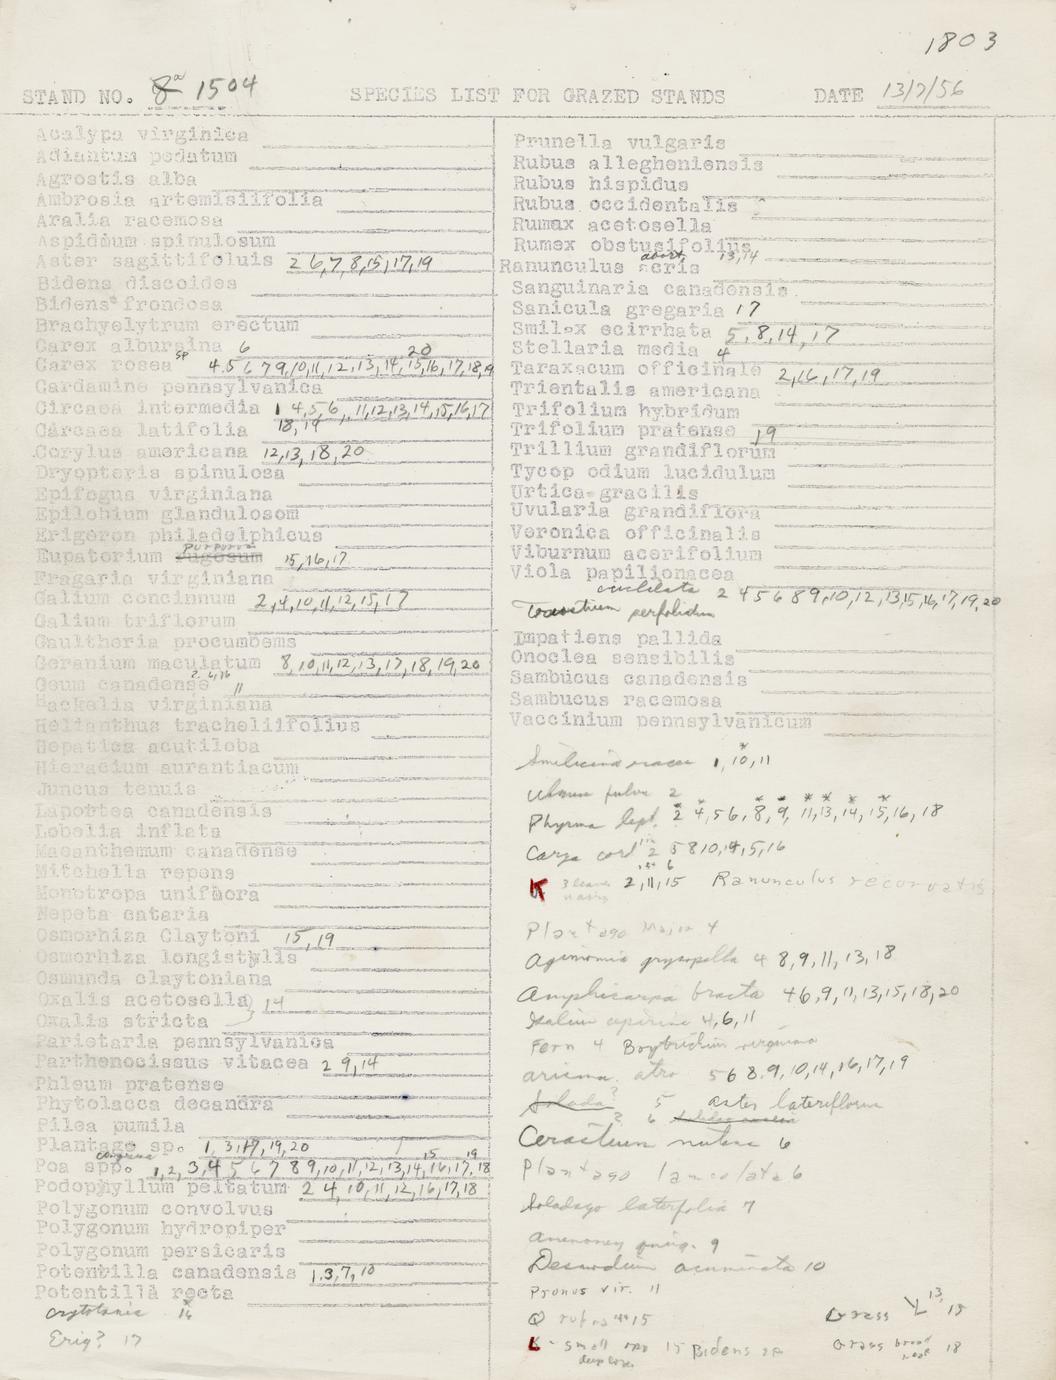 1803
STAND NO. 8a 1504 SPECIES LIST FOR GRAZED STANDS DATE 13/7/56
Acalypa virginica
Adiantum pedatum
Agrostis alba
Ambrosia artemisiifolia
Aralia racemosa
Aspidium spinulosum
Aster sagittifoluis 2 6,7,8,15,17,19
Bidens discoides
Bidens frondosa
Brachyelytrum erectum
Carex alburaina 6
20
Carex rosea sp 4.5 6 7 9,10,11,12,13,14,15,16,17,18,19
Cardamine pennsylvanica
Circaea intermedia 1 4,5,6,,11,12,13,14,15,16,17
18,19
Circaea latifolia
Corylus americana 12,13,18,20
Dryopteris spinulosa
Epifogus virginiana
Epilobium glandulosom
Erigeron philadelphicus
purpurea
Eupatorium rugosum 15,16,17
Fragaria virginiana
Galium concinnum 2,4,10,11,12,15,17
Galium triflorum
Gaultheria procumbems
Geranium maculatum 8,10,11,12,13,17,18,19,20
Geum canadense 11
Hackelia virginiana
Helianthus tracheliifolius
Hepatica acutiloba
Hieracium aurantiacum
Juncus tenuis
Laportea canadensis
Lobelia inflata
Maeanthemum canadense
Mitchella repens
Monotropa uniflora
Nepeta cataria
Osmorhiza Claytoni 15,19
Osmorhiza longistylis
Osmunda claytoniana
Oxalis acetosella) 14
Oxalis stricta
Parietaria pennsylvanica
Parthenocissus vitacea 2 9,14
Phleum pratense
Phytolacca decandra
Pilea pumila
Plantago sp. 1,3,17,19,20
15 19
Poa spp. 1,2,3,4 5 6 7 8 9,10,11,12,13,14,16,17,18
Podophyllum peltatum 2 4,10,11,12,16,17,18
Polygonum convolvus
Polygonum hydropiper
Polygonum persicaris
Potentilla canadensis 1.3,7,10
Potentilla recta
16
Erig? 17
Prunella vulgaris
Rubus allegheniensis
Rubus hispidus
Rubus occidentalis
Rumax acetosella
Rumex obstusifolius
abort. 13,14
Ranunculus acris
Sanguinaria canadensis
Sanicula gregaria 17
Smilax ecirrhata 5,8,14,17
Stellaria media 4
Taraxacum officinale 2,16,17,19
Trientalis americana
Trifolium hybridum
Trifolium pratense 19
Trillium grandiflorum
Tycop odium lucidulum
Urtica gracilis
Uvularia grandiflora
Veronica officinalis
Viburnum acerifolium
Viola papilionacea
cucullata 2 4 5 6 8 9,10,12,13,15,16,17,19,20
perfoliatum
Impatiens pallida
Onoclea sensibilis
Sambucus canadensis
Sambucus racemosa
Vaccinium pennsylvanicum
Smilicina racem 1,10,11
Ulmus fulva 2
Phryma lept. 2 4,5 6,8,9,11,13,14,15,16,18
Carya cord 2 5 8 10,14,15,16
K 3 leaves 2,11,15 Ranunculus recurvatis
Plantago Major 4
Agrimonia gryposepalla 4 8,9,11,13,18
Amphicarpa bracta 4 6,9,11,13,15,18,20
Galium aparine 4,6,11
Fern 4 Boytrichium virginiana
arisma. atro 5 6 8.9,10,14,16,17,19
Solada? 5 aster lateriflorus
? 6
Cerastium nutans 6
Plantago lanceolata 6
Soladago laterfolia 7
anemoney quinq. 9
Desmodium acuminata 10
Prunus vir. 11
Q rubra 15 Grass 13, 15
small 15 Bidens sp Grass broad 18